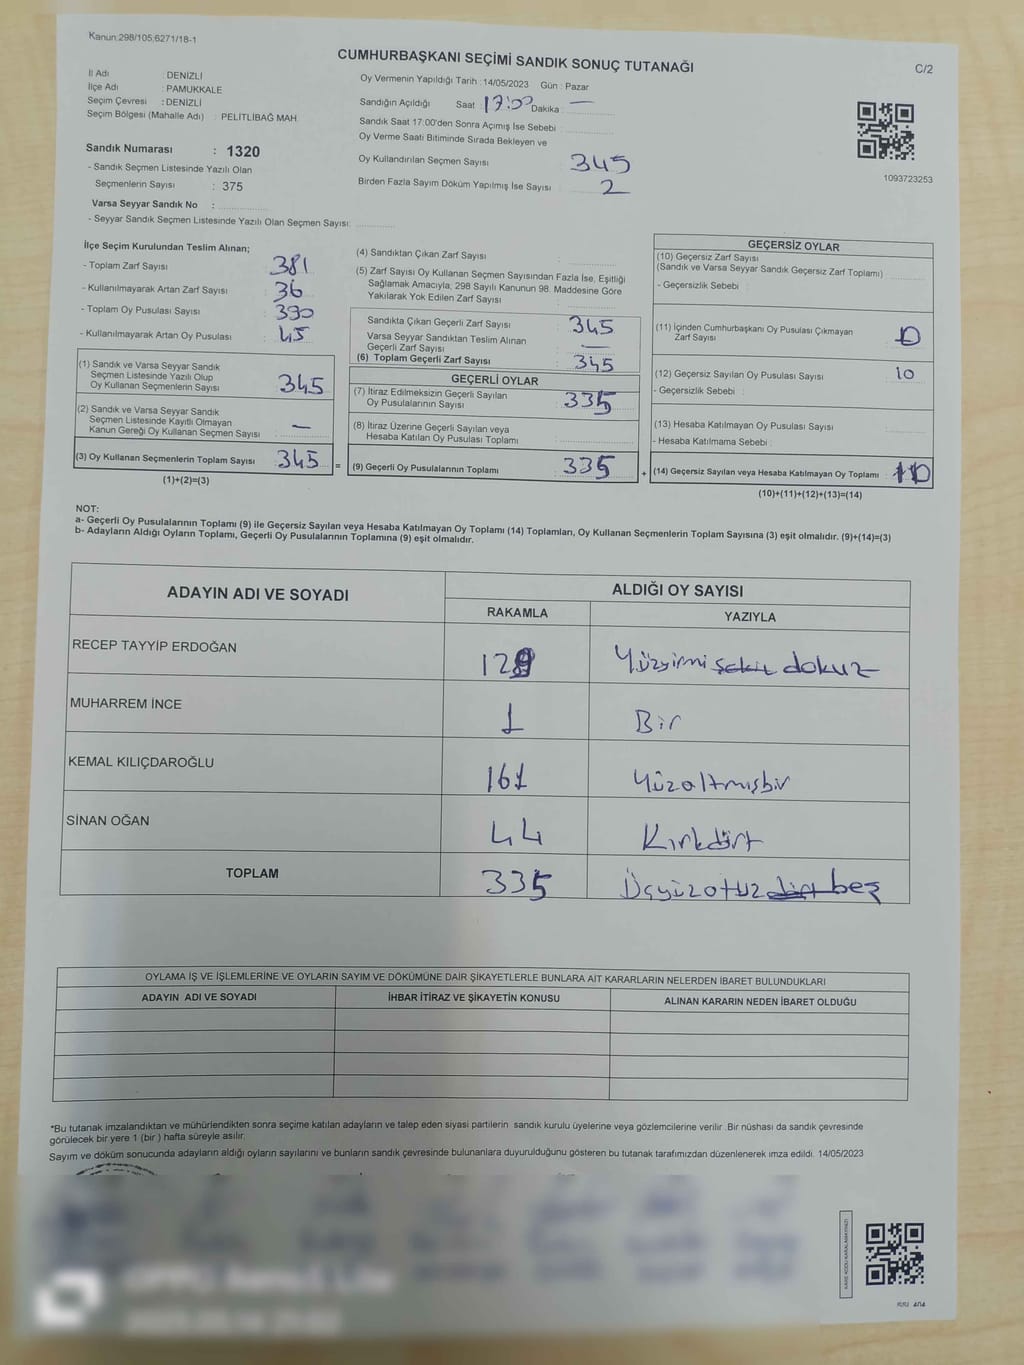 Kanun:298/105;6271/18-1
CUMHURBAŞKANI SEÇİMİ SANDIK SONUÇ TUTANAĞI
C/2
İl Adı : DENİZLİ
İlçe Adı : PAMUKKALE
Seçim Çevresi : DENİZLİ
Seçim Bölgesi (Mahalle Adı) : PELİTLİBAĞ MAH.
Sandık Numarası : 1320
- Sandık Seçmen Listesinde Yazılı Olan
Seçmenlerin Sayısı : 375
Varsa Seyyar Sandık No :
- Seyyar Sandık Seçmen Listesinde Yazılı Olan Seçmen Sayısı:
Oy Vermenin Yapıldığı Tarih : 14/05/2023 Gün : Pazar
Sandığın Açıldığı Saat : 17:00 Dakika : —
Sandık Saat 17:00'den Sonra Açımış İse Sebebi :
Oy Verme Saati Bitiminde Sırada Bekleyen ve
Oy Kullandırılan Seçmen Sayısı 345
Birden Fazla Sayım Döküm Yapılmış İse Sayısı : 2
1093723253
İlçe Seçim Kurulundan Teslim Alınan;
- Toplam Zarf Sayısı : 381
- Kullanılmayarak Artan Zarf Sayısı : 36
- Toplam Oy Pusulası Sayısı : 390
- Kullanılmayarak Artan Oy Pusulası : 45
(1) Sandık ve Varsa Seyyar Sandık
Seçmen Listesinde Yazılı Olup
Oy Kullanan Seçmenlerin Sayısı : 345
(2) Sandık ve Varsa Seyyar Sandık
Seçmen Listesinde Kayıtlı Olmayan
Kanun Gereği Oy Kullanan Seçmen Sayısı : —
(3) Oy Kullanan Seçmenlerin Toplam Sayısı : 345
(1)+(2)=(3)
=
(4) Sandıktan Çıkan Zarf Sayısı :
(5) Zarf Sayısı Oy Kullanan Seçmen Sayısından Fazla İse, Eşitliği
Sağlamak Amacıyla; 298 Sayılı Kanunun 98. Maddesine Göre
Yakılarak Yok Edilen Zarf Sayısı :
Sandıkta Çıkan Geçerli Zarf Sayısı : 345
Varsa Seyyar Sandıktan Teslim Alınan
Geçerli Zarf Sayısı : —
(6) Toplam Geçerli Zarf Sayısı : 345
GEÇERLİ OYLAR
(7) İtiraz Edilmeksizin Geçerli Sayılan
Oy Pusulalarının Sayısı : 335
(8) İtiraz Üzerine Geçerli Sayılan veya
Hesaba Katılan Oy Pusulası Toplamı :
(9) Geçerli Oy Pusulalarının Toplamı : 335
+
GEÇERSİZ OYLAR
(10) Geçersiz Zarf Sayısı
(Sandık ve Varsa Seyyar Sandık Geçersiz Zarf Toplamı) :
- Geçersizlik Sebebi :
(11) İçinden Cumhurbaşkanı Oy Pusulası Çıkmayan
Zarf Sayısı : 0
(12) Geçersiz Sayılan Oy Pusulası Sayısı : 10
- Geçersizlik Sebebi :
(13) Hesaba Katılmayan Oy Pusulası Sayısı :
- Hesaba Katılmama Sebebi :
(14) Geçersiz Sayılan veya Hesaba Katılmayan Oy Toplamı : 10
(10)+(11)+(12)+(13)=(14)
NOT:
a- Geçerli Oy Pusulalarının Toplamı (9) ile Geçersiz Sayılan veya Hesaba Katılmayan Oy Toplamı (14) Toplamları, Oy Kullanan Seçmenlerin Toplam Sayısına (3) eşit olmalıdır. (9)+(14)=(3)
b- Adayların Aldığı Oyların Toplamı, Geçerli Oy Pusulalarının Toplamına (9) eşit olmalıdır.
ADAYIN ADI VE SOYADI ALDIĞI OY SAYISI
RAKAMLA YAZIYLA
RECEP TAYYİP ERDOĞAN 129 Yüzyirmi sekiz dokuz
MUHARREM İNCE 1 Bir
KEMAL KILIÇDAROĞLU 161 Yüzaltmışbir
SİNAN OĞAN 44 Kırkdört
TOPLAM 335 Üçyüzotuzdört beş
OYLAMA İŞ VE İŞLEMLERİNE VE OYLARIN SAYIM VE DÖKÜMÜNE DAİR ŞİKAYETLERLE BUNLARA AİT KARARLARIN NELERDEN İBARET BULUNDUKLARI
ADAYIN ADI VE SOYADI İHBAR İTİRAZ VE ŞİKAYETİN KONUSU ALINAN KARARIN NEDEN İBARET OLDUĞU
*Bu tutanak imzalandıktan ve mühürlendikten sonra seçime katılan adayların ve talep eden siyasi partilerin sandık kurulu üyelerine veya gözlemcilerine verilir. Bir nüshası da sandık çevresinde
görülecek bir yere 1 (bir) hafta süreyle asılır.
Sayım ve döküm sonucunda adayların aldığı oyların sayılarını ve bunların sandık çevresinde bulunanlara duyurulduğunu gösteren bu tutanak tarafımızdan düzenlenerek imza edildi. 14/05/2023